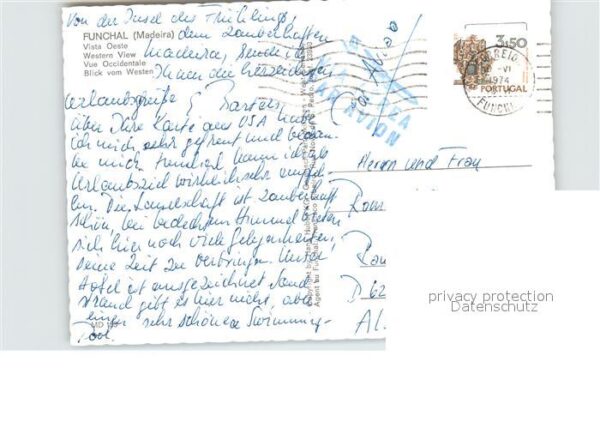 Von der Insel des Frühlings,
FUNCHAL (Madeira)
dem zauberhaften
Vista Oeste
Western View
Vue Occidentale
Blick vom Westen
Madeira, sendet
Ihnen die herzlichsten
Urlaubsgrüße
Über Ihre Karte aus USA habe
ich mich sehr gefreut und bedan-
ke mich. Funchal kann ich als
Urlaubsziel wirklich sehr empfeh-
len. Die Landschaft ist zauberhaft
schön, bei bedecktem Himmel bieten
sich hier noch viele Gelegenheiten,
seine Zeit zu verbringen. Unser
Hotel ist ausgezeichnet. Sand-
strand gibt es hier nicht, aber
einen sehr schönen Swimming-
Pool.
MD
PAR AVION
3$50
CORREIO
1974
FUNCHAL
PORTUGAL
Herrn und Frau
D 62
privacy protection
Datenschutz